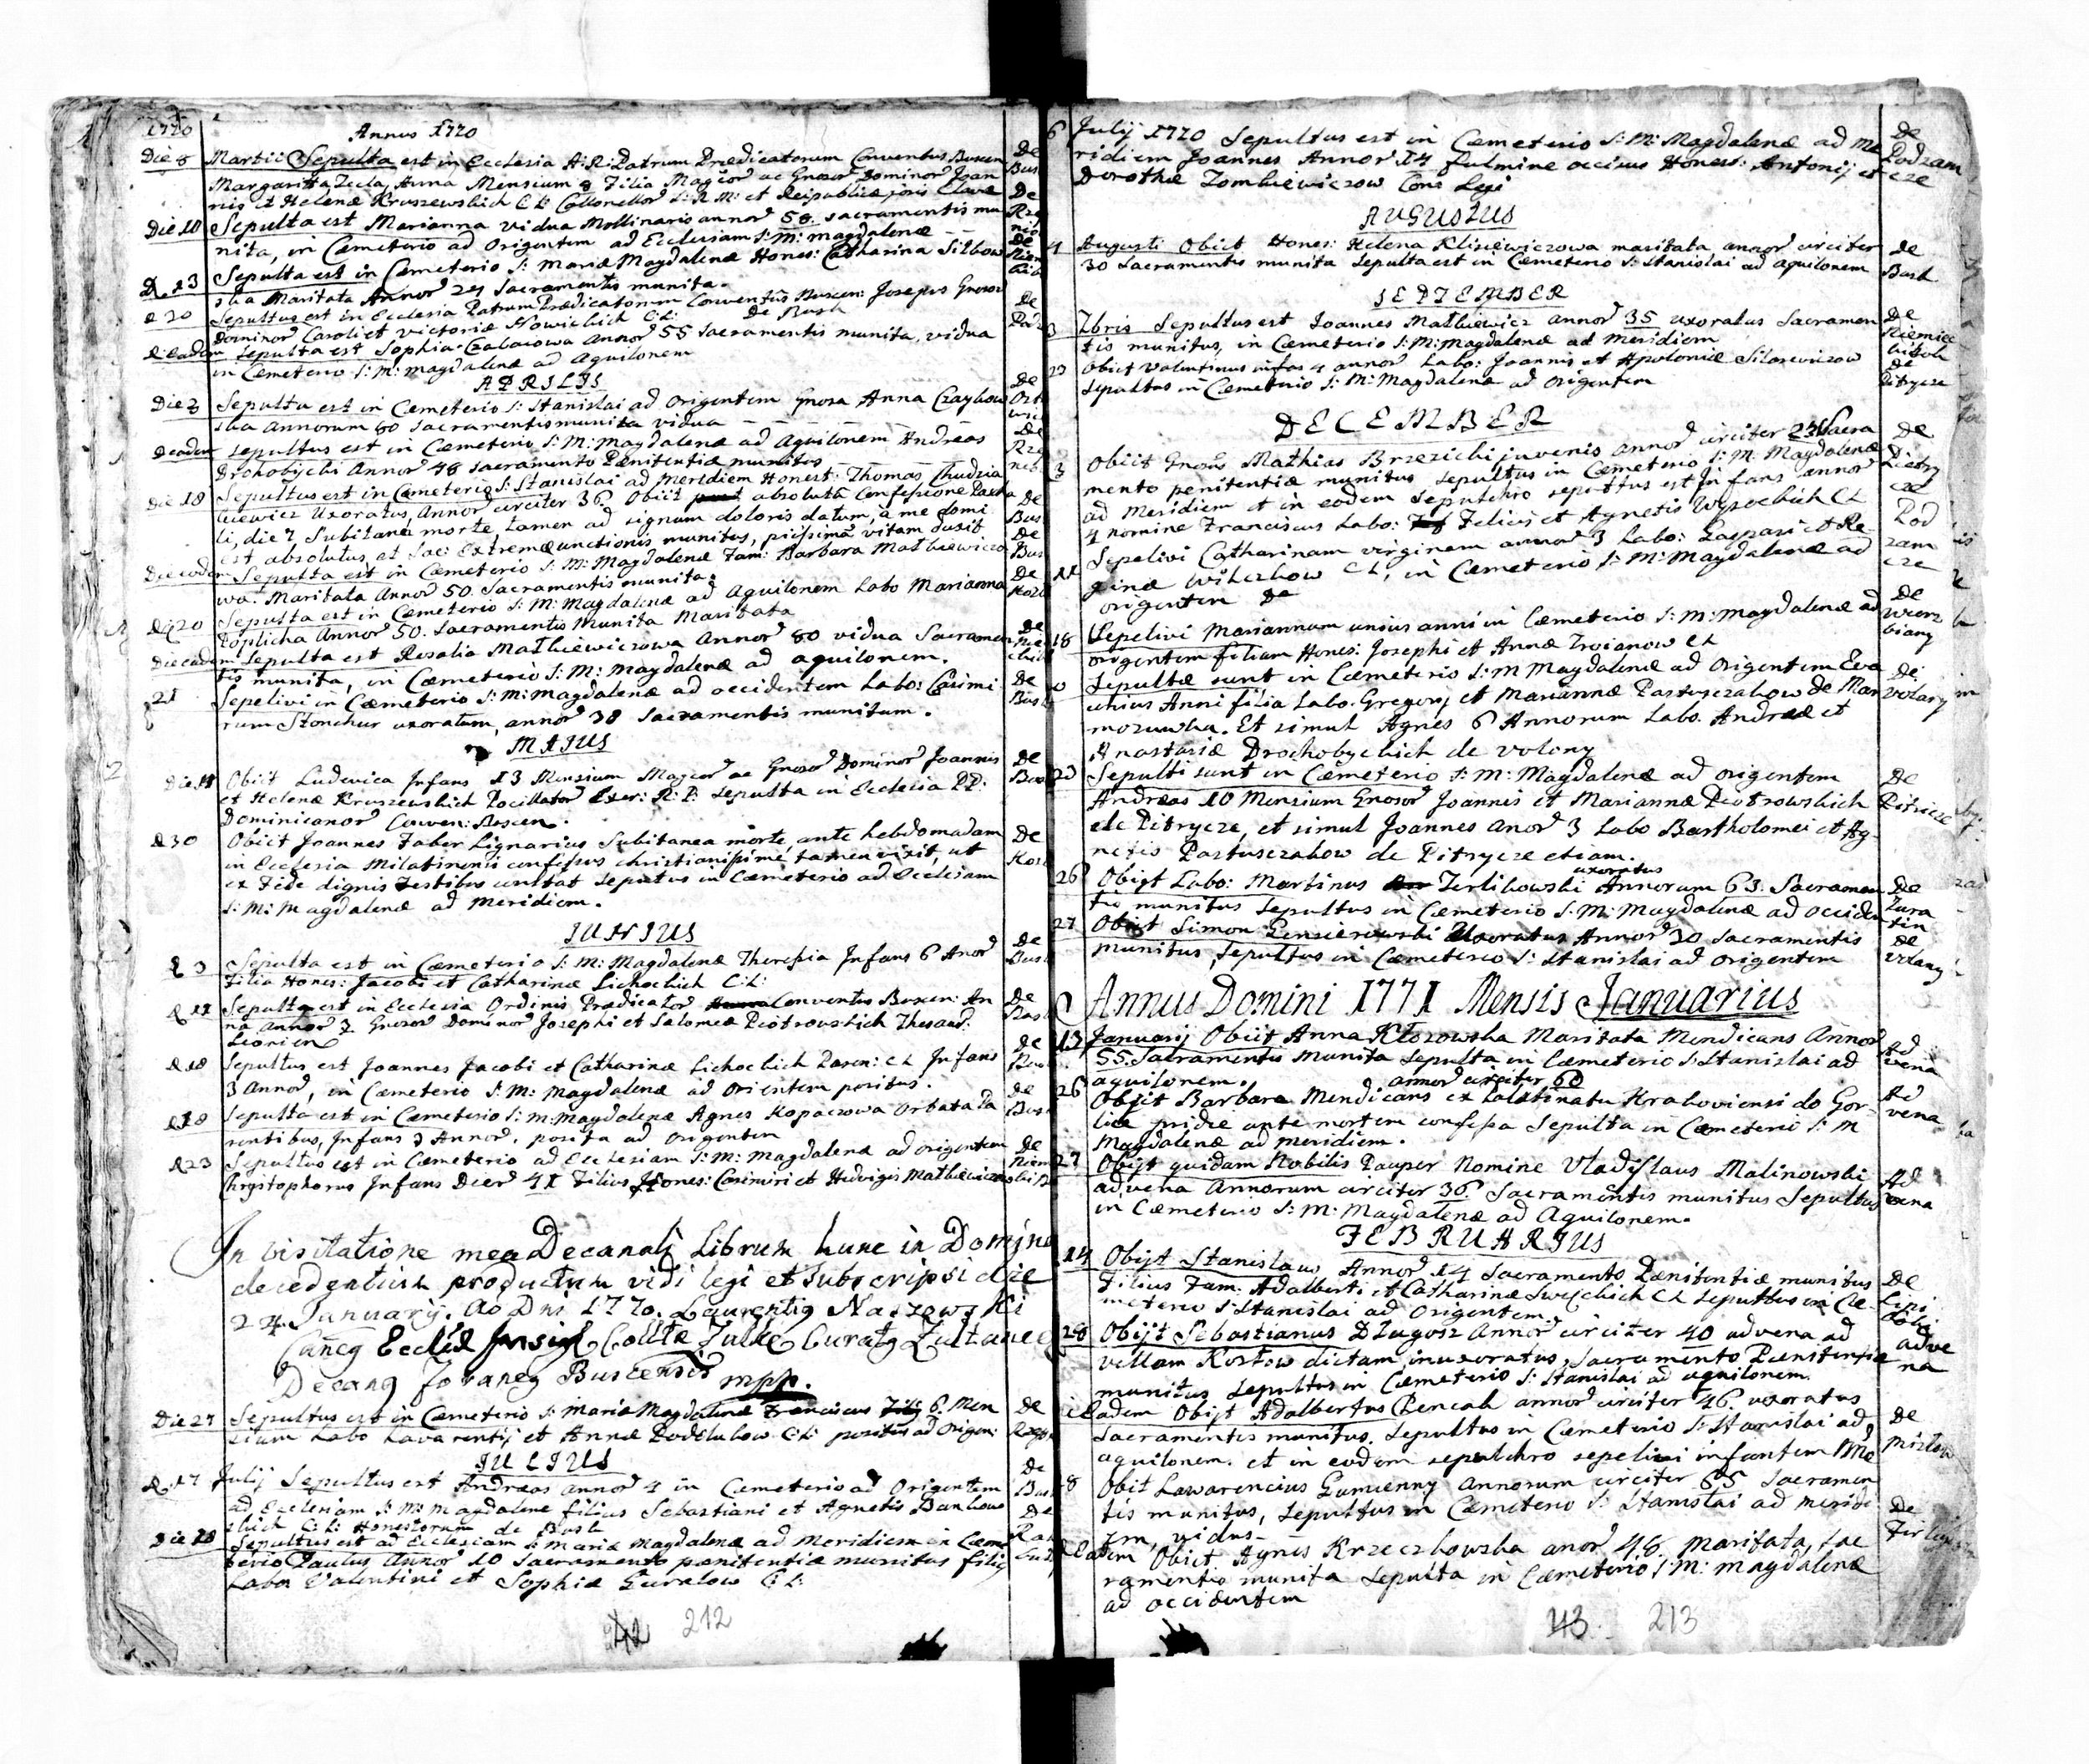 1770
Annus 1770
Die 8 Martii Sepulta est in Ecclesia A: R: Patrum Prædicatorum Conventus Buscen De
Margaritta Tecla Anna Mensium 8 Filia Magcor ac Gnosor Dominor Joan Bus
nis et Helenæ Kruszewskich C: L: S: R: M: et Reipublicæ De
Die 10 Sepulta est Marianna vidua Mollinaris annor 58. sacramentis mu
nita, in Cæmeterio ad Origentem ad Ecclesiam S: M: Magdalenæ De
D. 13 Sepulta est in Cemeterio S: Mariæ Magdalenæ Hones: Catharina
ska Maritata Annor 24 Sacramentis munita.
D 20 Sepultus est in Ecclesia Patrum Prædicatorum Conventus Buscen: Josephus Gnosor De
Dominor Caroli et Victoriæ Howickich C: L: De Busk
Die eadem Sepulta est Sophia Annor 55 Sacramentis munita, vidua
in Cemeterio S: M: Magdalenæ ad Aquilonem
APRILIS
Die 2 Sepulta est in Cæmeterio S: Stanislai ad Origentem Gnosa Anna Czaykow De
ska Annorum 80 Sacramentis munita vidua
D eadem sepultus est in Cæmeterio S: M: Magdalenæ ad Aquilonem Andreas De
Drohobycki Annor 48 sacramento Pænitentiæ munitus
Die 18 Sepultus est in Cæmeterio S: Stanislai ad Meridiem Honest: Thomas Chudzia
kiewicz Uxoratus, Annor circiter 36. Obiit absoluta Confessione Pascha De
li, die 2 Subitanea morte, tamen ad signum doloris datum, à me domi Bus
est absolutus, et Sac: Extremæ unctionis munitus, piissimà vitam duxit De
Die eadem Sepulta est in Cæmeterio S: M: Magdalenæ Fam: Barbara Matkiewiczo Bus
wa. Maritata Annor 50. Sacramentis munita. De
D 20 Sepulta est in Cæmeterio S: M: Magdalenæ ad Aquilonem Labo Marianna
Toplicha Annor 50. Sacramentis Munita Maritata
Die eadem Sepulta est Rosalia Matkiewiczowa Annor 80 vidua Sacramen De
tis munita, in Cæmeterio S: M: Magdalenæ ad aquilonem.
21 Sepelivi in Cæmeterio S: M: Magdalenæ ad occidentem Labo: Casimi De
rum Stonchur uxoratum, annor 38 Sacramentis munitum. Bus
MAIUS
Die 11 Obiit Ludovica Infans 13 Mensium Magcor ac Gnosor Dominor Joannis De
et Helenæ Kruszewskich Pocillator Exer: R: P: sepulta in Ecclesia PP: Bus
Dominicanor Conven: Buscen.
D 30 Obiit Joannes Faber Lignarius Subitanea morte, ante hebdomadam De
in Ecclesia Milatinensi confessus christianissimè tamen vixit, ut
ex Fide dignis Testibus constat sepultus in Cæmeterio ad Ecclesiam
S: M: Magdalenæ ad Meridiem.
IUNIUS
D 3 Sepulta est in Cæmeterio S: M: Magdalenæ Theressia Infans 6 Anor De
Filia Hones: Jacobi et Catharinæ Lichockich C: L: Busk
D 11 Sepulta est in Ecclesia Ordinis Prædicator Conventus Buscen: An De
na Annor 3 Gnosor Dominor Josephi et Salomeæ Piotrowskich Thesaur: Bus
D 18 Sepultus est Joannes Jacobi et Catharinæ Lichockich C L Infans De
3 Annor, in Cæmeterio S: M: Magdalenæ ad Orientem positus.
D 18 Sepulta est in Cæmeterio S: M: Magdalenæ Agnes Kopaczowa Orbata Pa De
rentibus, Infans 3 Annor, posita ad Origentem
D 23 Sepultus est in Cæmeterio ad Ecclesiam S: M: Magdalenæ ad origentem De
Chrystophorus Infans Dier 41 Filius Hones: Casimiri et Hedvigis Matkiewiczow
In visitatione mea Decanali Librum hunc in Domino
decedentium productum vidi legi et subscripsi die
24. January. Ao Dni 1770. Laurentig Naszowski
Cañcg Ecclæ Insig Colltæ Curatg
Decang foraneg Buscensis mpp.
Die 27 Sepultus est in Cæmeterio S: Mariæ Magdalenæ Franciscus 6. Men De
sium Labo Lavarentij et Annæ C: L: positus ad Origen:
IULIUS
D. 17 July Sepultus est Andreas annor 4 in Cæmeterio ad Origentem De
ad Ecclesiam S: M: Magdalenæ filius Sebastiani et Agnetis Bankow
skich C: L: Honestorum de Busk De
Die 20 Sepultus est ad Ecclesiam S: Mariæ Magdalenæ ad Meridiem in Cæme
terio Paulus Annor 10 Sacramento pænitentiæ munitus filig
Labor Valentini et Sophiæ Guralow C: L:
42 212
6 July 1770 Sepultus est in Cæmeterio S: M: Magdalenæ ad Me De
ridiem Joannes Annor 14 fulmine occisus Hones: Antonij et Podzam
Dorothæ Zombkiewiczow Cons Legi cze
AUGUSTUS
4 Augusti Obiit Hones: Helena Klisiewiczowa maritata annor circiter De
30 Sacramentis munita Sepulta est in Cæmeterio S: Stanislai ad aquilonem Busk
SEPTEMBER
3 7bris Sepultus est Joannes Matkiewicz annor 35 uxoratus Sacramen De
tis munitus, in Cæmeterio S: M: Magdalenæ ad Meridiem
Obiit Valentinus infas 4 annor Labo: Joannis et Apoloniæ De
Sepultus in Cæmeterio S: M: Magdalenæ ad Origentem Pitrycze
DECEMBER
3 Obiit Gnosus Mathias Brzezicki juvenis annor circiter 23 Sacra De
mento penitentiæ munitus sepultus in Cæmeterio S: M: Magdalenæ Pietry
ad Meridiem et in eodem Sepulchro sepultus est Infans annor cze
4 nomine Franciscus Labo: Felicis et Agnetis Wysockich C L Pod
11 Sepelivi Catharinam virginem annor 3 Labo: Gaspari et Re- zam
ginæ Wilczkow C L, in Cæmeterio S: M: Magdalenæ ad cze
origentem De De
18 Sepelivi Mariannam unius anni in Cæmeterio S: M: Magdalenæ ad Wierz
origentem filiam Hones: Josephi et Annæ Troianow C L biany
Sepultæ sunt in Cæmeterio S: M Magdalenæ ad Origentem Eva De
unius Anni filia Labo. Gregorij et Mariannæ Pastuszakow de Mar Volany
mozuwka. Et simul Agnes 6 Annorum Labo. Andreæ et
Anastasiæ Drochobyckich de Volany
23 Sepulti sunt in Cæmeterio S: M: Magdalenæ ad Origentem De
Andreas 10 Mensium Gnosor Joannis et Mariannæ Piotrowskich Pitricze
de Pitrycze, et simul Joannes Anor 3 Labo Bartholomei et Ag-
netis Pastuszakow de Pitrycze etiam.
uxoratus
26 Obiyt Labo: Martinus Terlikowski Annorum 63. Sacramen De
tis munitus sepultus in Cæmeterio S: M: Magdalenæ ad occiden Zura
27 Obiit Simon Uxoratus Annor 30 Sacramentis tin De
munitus, Sepultus in Cæmeterio S: Stanislai ad Origentem Volany
Annus Domini 1771 Mensis Januarius
13 Januarij Obiit Anna Klosowska Maritata Mendicans Annor Ad
55. Sacramentis Munita Sepulta in Cæmeterio S: Stanislai ad vena
aquilonem. annor circiter 60
26 Obijt Barbara Mendicans ex Palatinatu Krakoviensi de Gor Ad
lice pridie ante mortem confessa Sepulta in Cæmeterio S: M vena
Magdalenæ ad meridiem.
27 Obijt quidam Nobilis Pauper Nomine Vladislaus Malinowski Ad
advena Annorum circiter 36. Sacramentis munitus Sepultus vena
in Cæmeterio S: M: Magdalenæ ad Aquilonem.
FEBRUARIUS
14 Obijt Stanislaus Annor 14 Sacramento Pænitentiæ munitus De
Filius Fam: Adalberti et Catharinæ C L sepultus in Cæ- Lipi
meterio S: Stanislai ad Origentem. boki
28 Obijt Sebastianus Dlugosz Annor circiter 40 advena ad adve
villam Kozlow dictam, inuxoratus, Sacramento Pænitentiæ na
munitus sepultus in Cæmeterio S: Stanislai ad aquilonem.
eadem Obijt Adalbertus Pencak annor circiter 46. uxoratus De
Sacramentis munitus. Sepultus in Cæmeterio S: Stanislai ad
aquilonem. et in eodem sepulchro sepelivi infantem
Obit Lawarencius Gumienny Annorum circiter 85 Sacramen
tis munitus, Sepultus in Cæmeterio S: Stanislai ad meridi De
em, vidus.
Eadem Obiit Agnes Krzeczkowska anor 46. Maritata, sac
ramentis munita Sepulta in Cæmeterio S: M: Magdalenæ
ad occidentem
43. 213